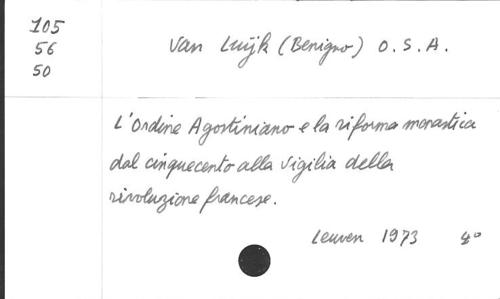 105
56
50
Van Luijk (Benigno) O.S.A.
L'Ordine Agostiniano e la riforma monastica
dal cinquecento alla vigilia della
rivoluzione francese.
Leuven 1973 4°